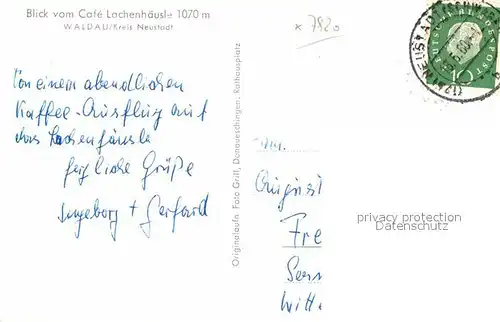 Blick vom Café Lachenhäusle 1070 m
WALDAU/Kreis Neustadt
* 7820
Von einem abendlichen
Kaffee-Ausflug auf
das Lachenhäusle
herzliche Grüße
Ingeborg + Gerhard
Originalaufn. Foto Grill, Donaueschingen, Rathausplatz
DEUTSCHE BUNDESPOST
10
Fam.
August
Fre
Ser
Witt
privacy protection
Datenschutz